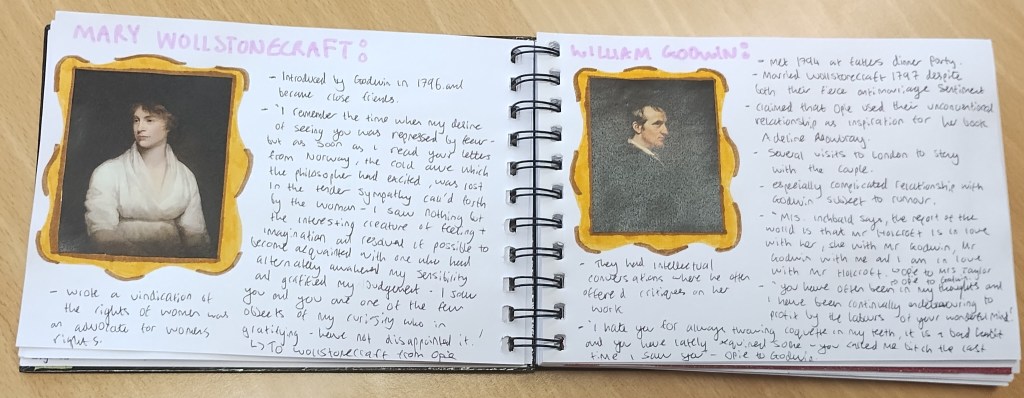 MARY WOLLSTONECRAFT:
- Introduced by Godwin in 1796 and
became close friends.
- "I remember the time when my desire
of seeing you was repressed by fear -
but as soon as I read your letters
from Norway, the cold awe which
the philosopher had excited, was lost
in the tender sympathy call'd forth
by the woman - I saw nothing but
the interesting creature of feeling +
imagination and resolved if possible to
become acquainted with one who had
alternately awakened my sensibility
and gratified my judgement - I saw
you and you are one of the few
objects of my curiosity who in
gratifying - have not disappointed it.'
↳ To Wollstonecraft from Opie
- wrote a vindication of
the rights of women was
an advocate for womens
rights.
WILLIAM GODWIN:
- Met 1794 at fathers dinner party.
- Married Wollstonecraft 1797 despite
both their fierce antimarriage sentiment
- claimed that Opie used their unconventional
relationship as inspiration for her book
Adeline Mowbray.
- Several visits to London to stay
with the couple.
- especially complicated relationship with
Godwin subject to rumour.
- "Mrs. Inchbald says, the report of the
world is that Mr Holcroft is in love
with her, she with Mr Godwin, Mr
Godwin with me and I am in love
with Mr Holcroft. wrote to Mrs Taylor
- Opie to Godwin
- 'you have often been in my thoughts and
I have been continually endeavouring to
profit by the labours of your wonderful mind'
- They had intellectual
conversations where he often
offered critiques on her
work
- 'I hate you for always throwing coquette in my teeth, it is a bad habit
and you have lately acquired some - you called me bitch the last
time I saw you - Opie to Godwin.